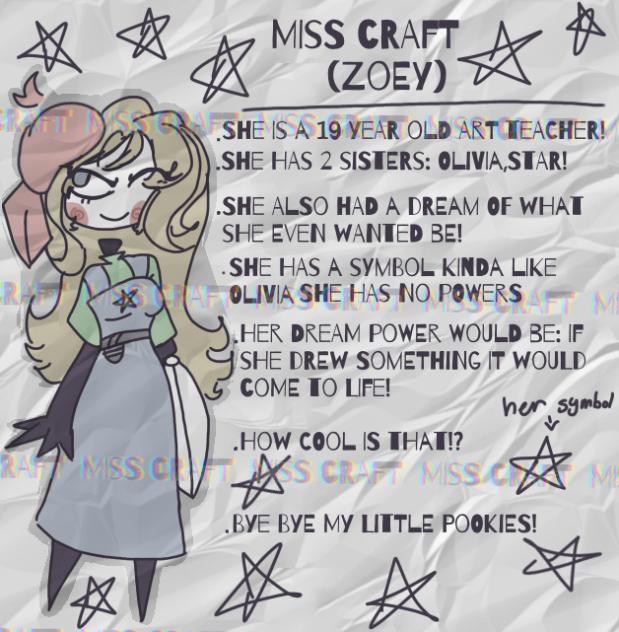 MISS CRAFT
(ZOEY)
.SHE IS A 19 YEAR OLD ART TEACHER!
.SHE HAS 2 SISTERS: OLIVIA,STAR!
.SHE ALSO HAD A DREAM OF WHAT
SHE EVEN WANTED BE!
.SHE HAS A SYMBOL KINDA LIKE
OLIVIA SHE HAS NO POWERS
.HER DREAM POWER WOULD BE: IF
SHE DREW SOMETHING IT WOULD
COME TO LIFE!
her symbol
.HOW COOL IS THAT!?
.BYE BYE MY LITTLE POOKIES!
CRAFT MISS CRAFT MISS CRAFT MISS CRAFT
CRAFT MISS CRAFT MISS CRAFT MISS CRAFT MI
CRAFT MISS CRAFT MISS CRAFT MISS CRAFT MI